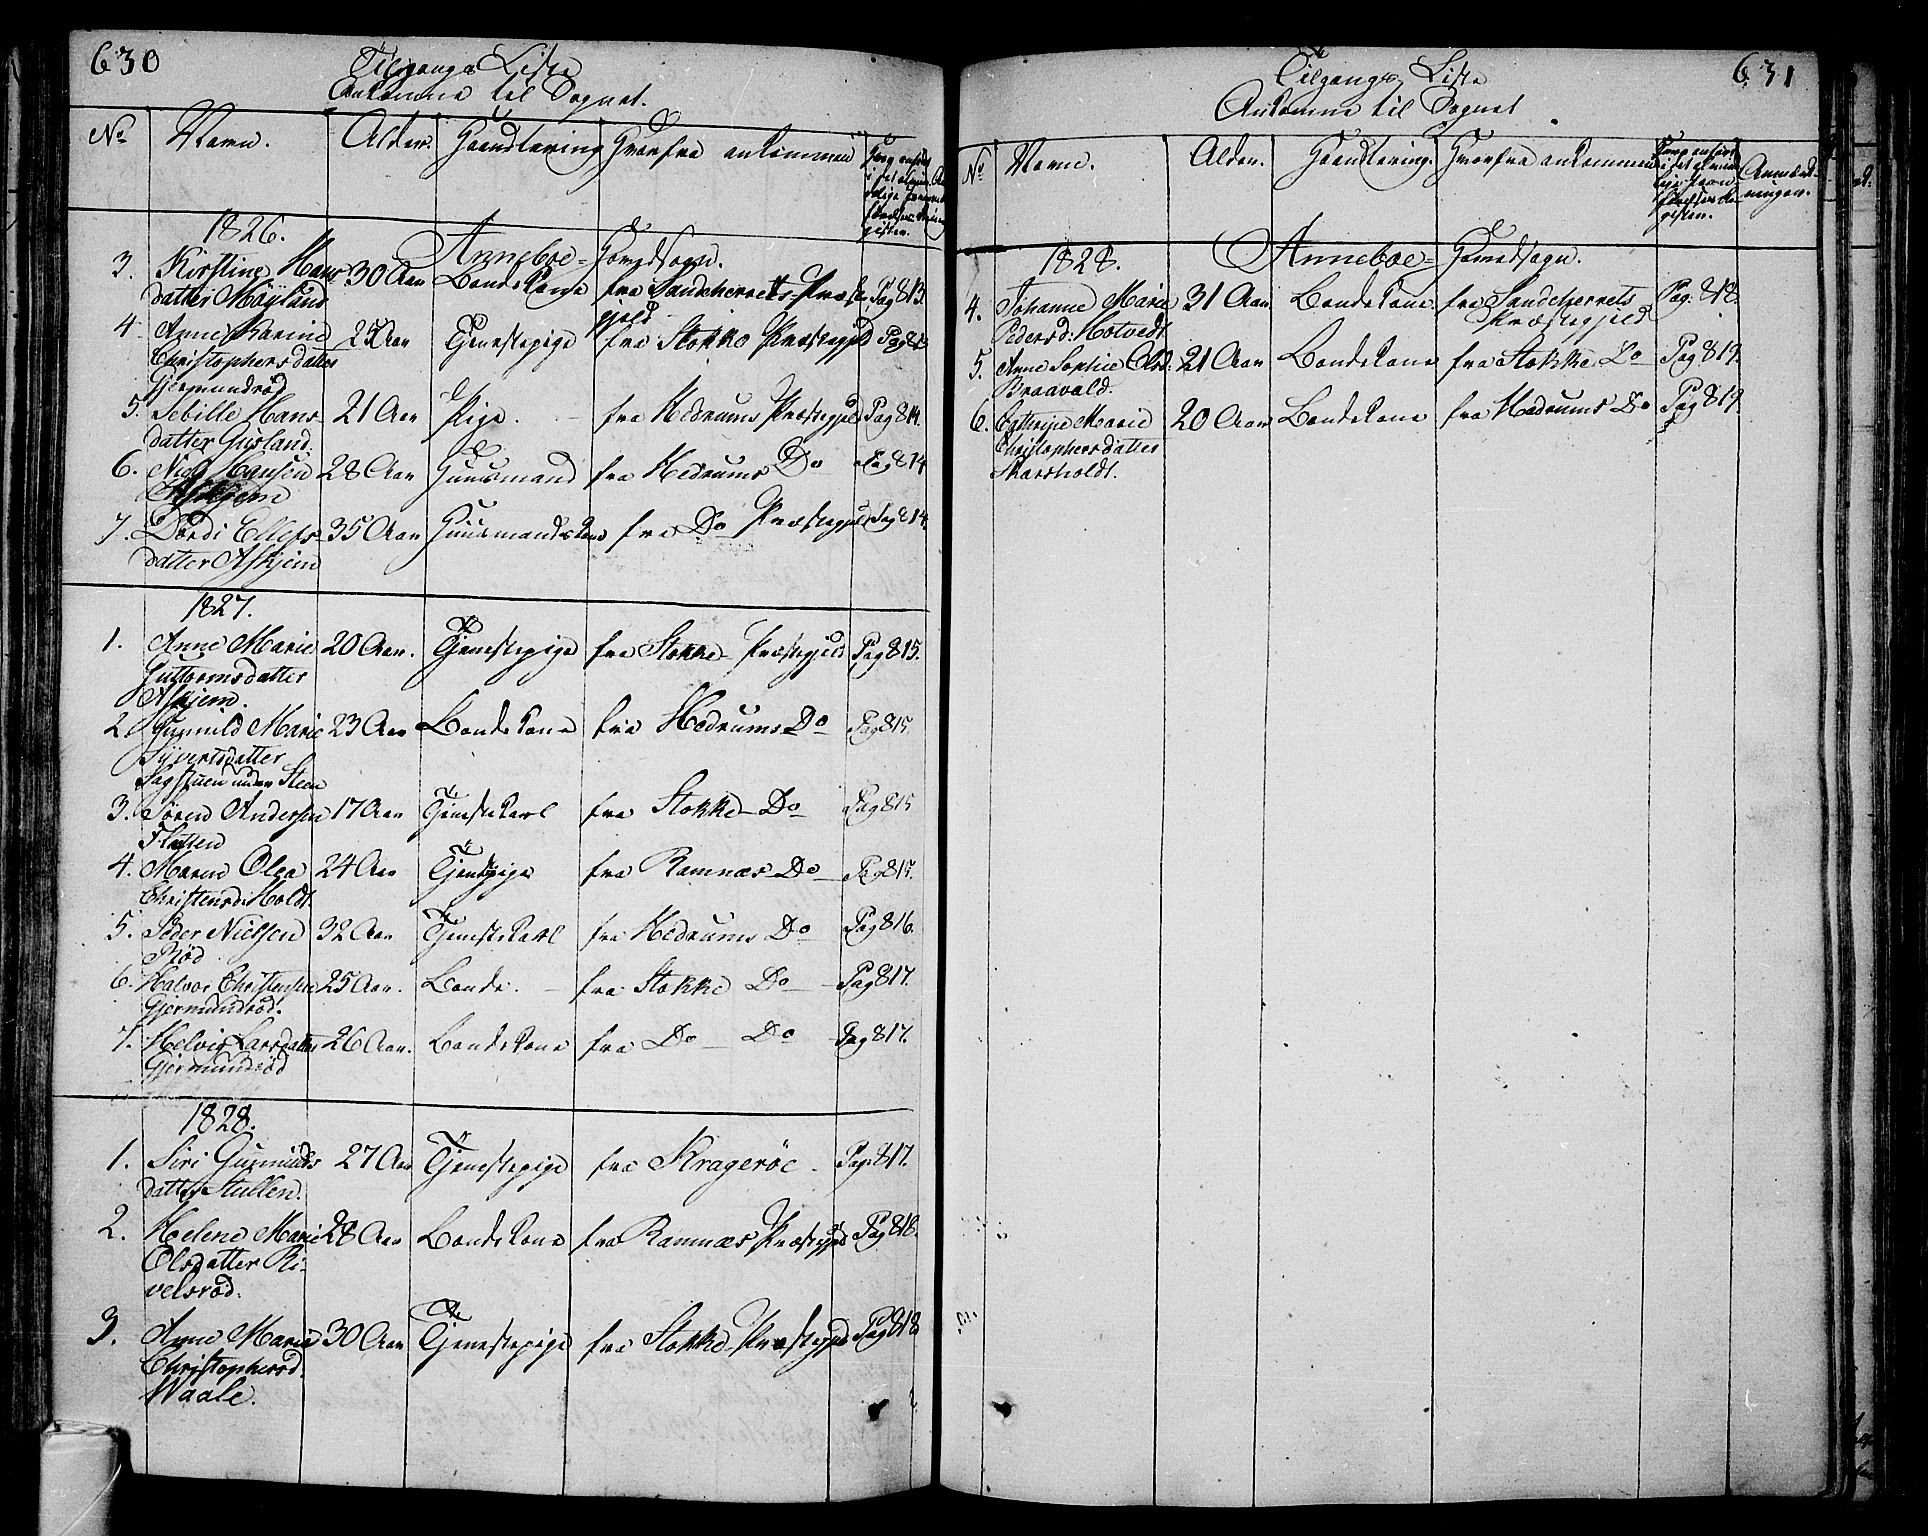 630
Tilgangs Liste
Ankomne til Sognet.
No Navn. Alder. Haandtering Hvorfra ankommen
1826. Anneboe- Hovedsogn.
3. Kirstine Hans 30 Aar Bondekone fra Sandeherrets Præste Pag 813.
datter Möÿland gjeld
4 Anne Karine 25 Aar Tjenestepige fra Stokke Præstegjeld Pag
Christophersdatter
Gjermundröd
5. Sebille Hans- 21 Aar Pige. fra Hedrums Præstegjeld Pag 814.
datter Gusland.
6. Niels Hansen 28 Aar Huusmand fra Hedrums Do Pag 814
Askjem
7. Dordi Ellefs- 35 Aar Huusmandskone fra Do Præstegjeld Pag 814.
datter Askjem
1827.
1. Anne Marie 20 Aar. Tjenestepige fra Stokke Præstegjeld Pag 815.
Guttormsdatter
Askjem.
2. Gunnild Marie 23 Aar Bondekone fra Hedrums Do Pag 815.
Syvertsdatter
Sagstuen under Steen
3. Sören Andersen 17 Aar Tjenestekarl fra Stokke Do Pag 815
Flåtten
4. Maren Olea 24 Aar Tjenstpige fra Ramnæs Do Pag 815.
Christensd: Holdt.
5. Peder Nielsen 32 Aar Tjenestekarl fra Hedrums Do Pag 816.
Röd
6. Halvor Christensen 25 Aar. Bonde. fra Stokke Do Pag 817.
Gjermundröd.
7. Helvig Larsdatter 26 Aar. Bondekone fra Do Do Pag 817.
Gjermundröd
1828.
1. Siri Gunnilds 27 Aar Tjenestepige fra Krageröe. Pag: 817.
datter Stullen.
2. Helene Marie 28 Aar Bondekone fra Ramnæs Præstegjeld Pag 818.
Olsdatter Ri-
velsröd.
3. Anne Marie 30 Aar Tjenestepige fra Stokke Præstegjeld Pag 818
Christophersd.
Waale.
631
Tilgangs Liste
Ankomne til Sognet
No Navn. Alder. Haandtering. Hvorfra ankommen Anmærk-
ningen.
1828. Anneboe- Hovedsogn.
4. Johanne Marie 31 Aar Bondekone fra Sandeherrets Pag: 818.
Pedersd: Hotvedt Præstegjeld
5. Anne Sophie Olsd: 21 Aar Bondekone fra Stokke Do Pag 819.
Braavald.
6. Cathrine Marie 20 Aar Bondekone fra Hedrums Do Pag 819.
Christophersdatter
Skarsholdt.